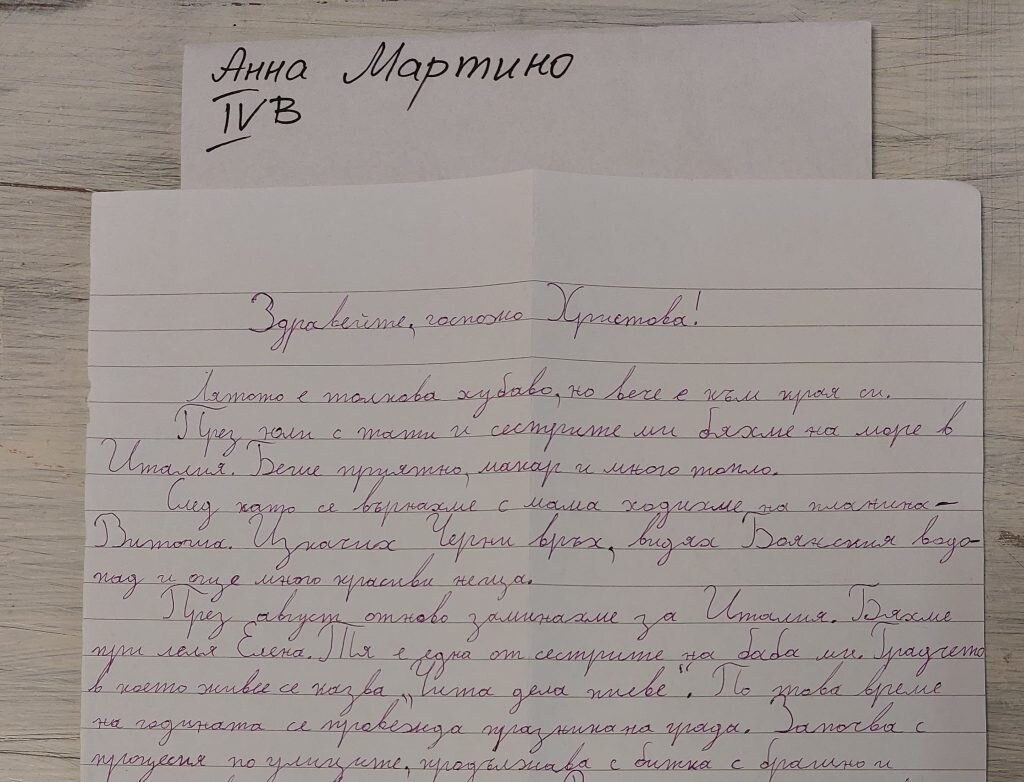 Анна Мартино
IV В
Здравейте, госпожо Христова!
Лятото е толкова хубаво, но вече е към края си.
През юли с тати и сестрите ми бяхме на море в
Италия. Беше приятно, макар и много топло.
След като се върнахме с мама ходихме на планина –
Витоша. Изкачих Черни връх, видях Боянския водо-
пад и още много красиви неща.
През август отново заминахме за Италия. Бяхме
при леля Елена. Тя е една от сестрите на баба ми. Градчето
в което живее се казва „Чита дела пиеве“. По това време
на годината се провежда празника на града. Започва с
процесия по улиците, продължава с битка с брашно и